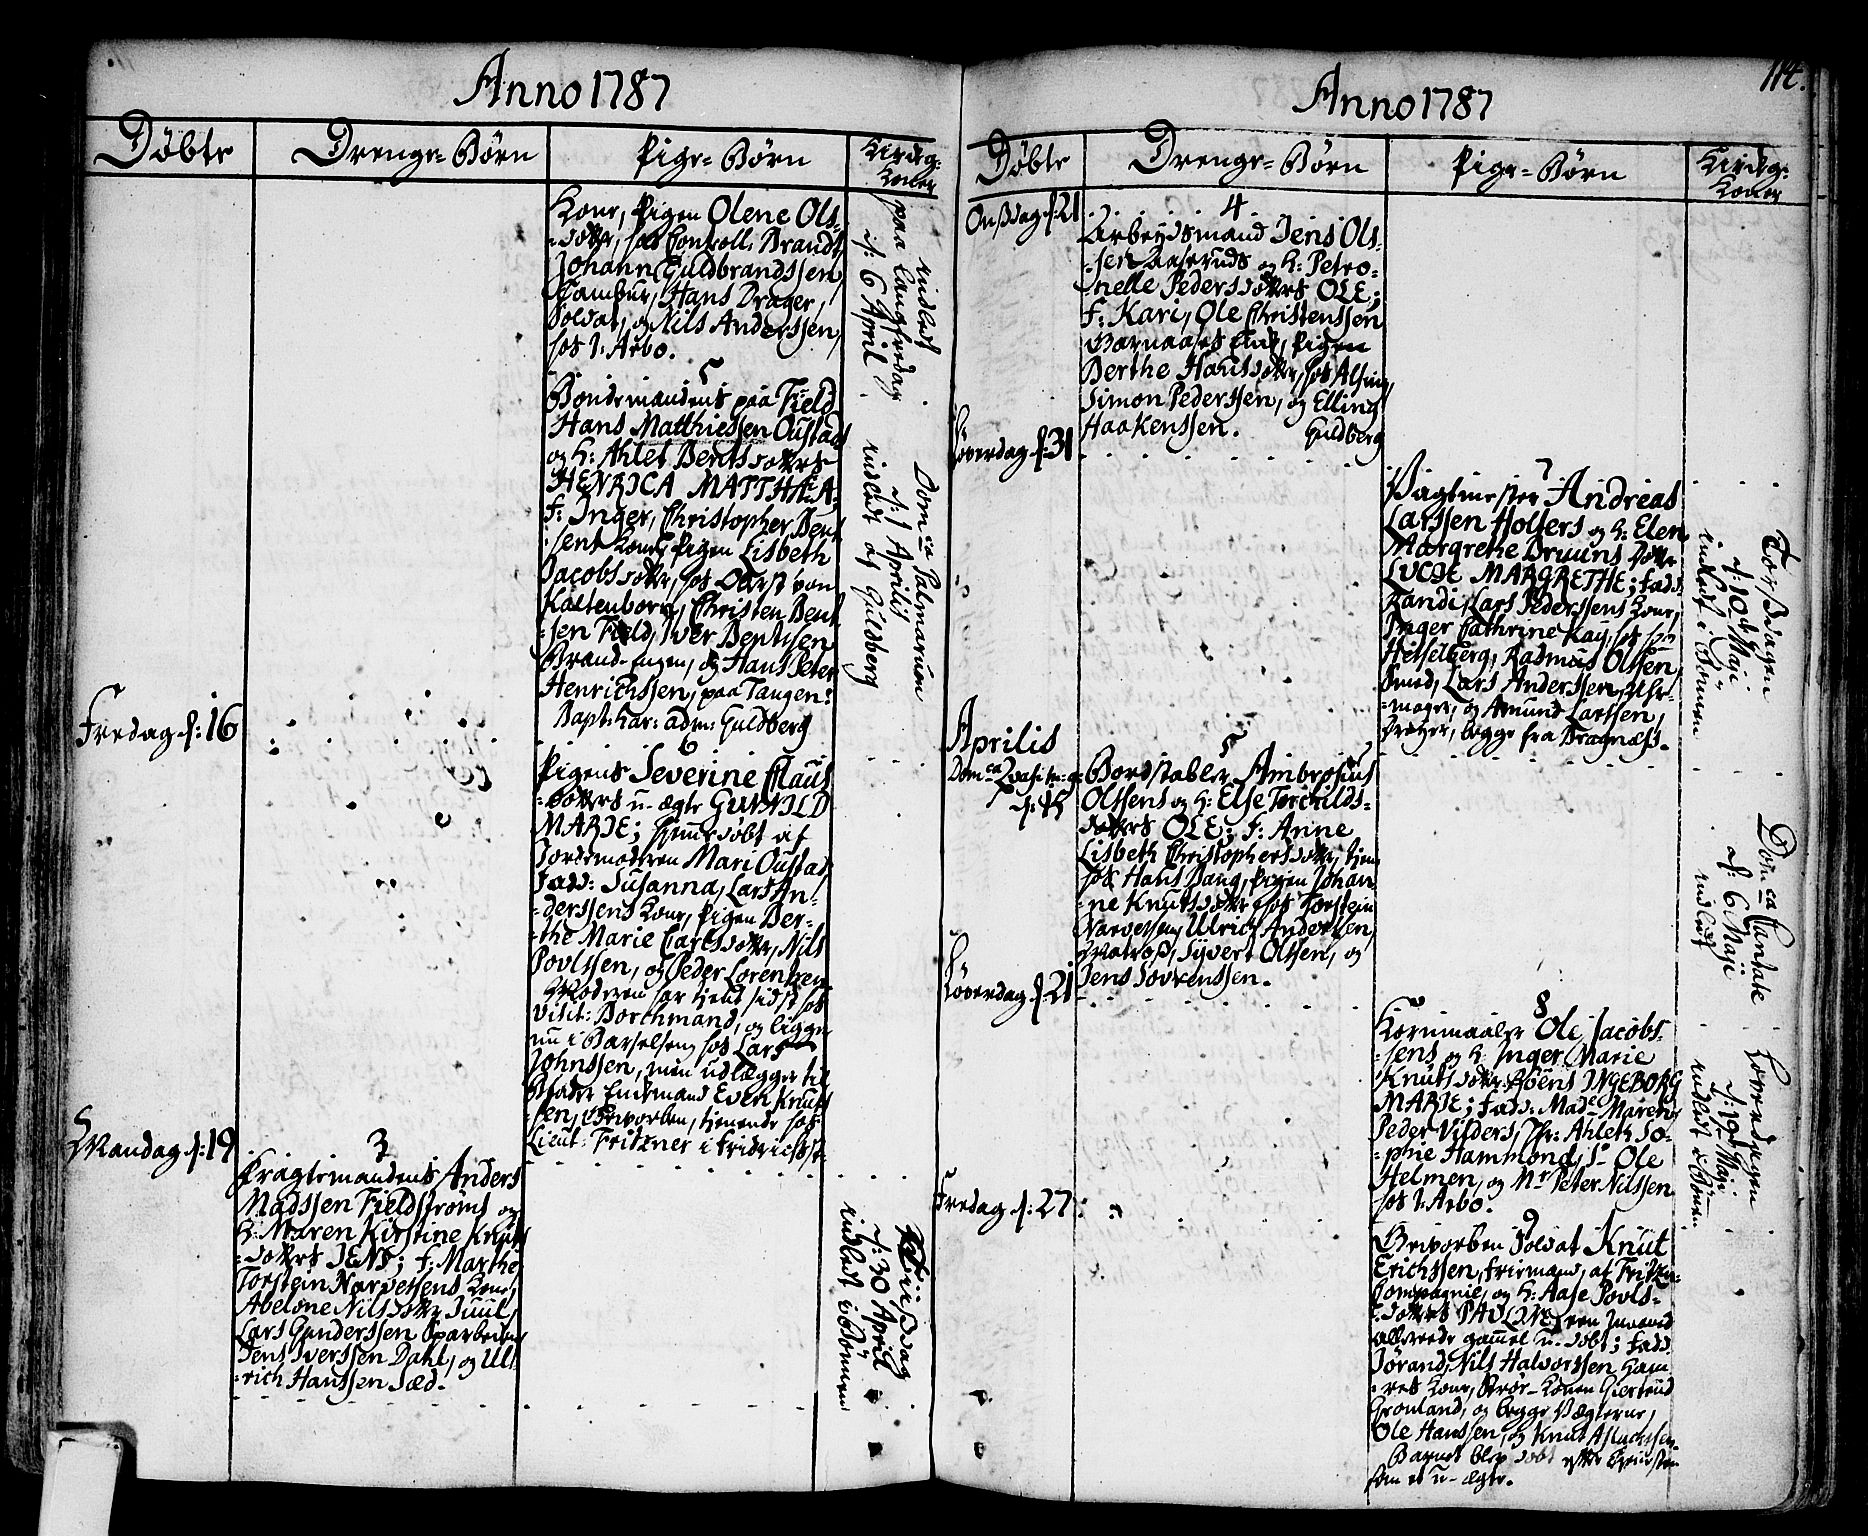 Anno 1787
Døbte
Drenge-Børn
Pige-Børn
Kirkeg:
Koner
Kone, Pigen Olene Ols-
-datter, hos Controll: Brandt,
Johann Guldbrandssen
Tambur, Hans Drager,
Soldat, og Nils Anderssen,
hos J: Arbo.
5
Bondemandens paa Field
Hans Matthiessen Oustad
og H: Ahlet Bentsdatters
HENRICA MATTHEA:
F: Inger, Christopher Bent
sens Kone, Pigen Lisbeth
Jacobsdatter, hos Oberst von
Kaltenborn, Christen Bent
-sen Field, Iver Bentssen
Brand-Engen, og Hans Peter
Henrichssen, paa Tangen:
Bapt: har: adm: Guldberg
indledt
paa Langfredag
d: 6 April
Dom ca Palmarum
d: 1 Aprilis
indledt af Guldberg
Fredag d: 16
6
Pigens Severine Claus
-datters u-ægte GUNNILD
MARIE; hjemmedøbt af
Jordemoderen Mari Oustad
Fadd: Susanna, Lars An-
-derssens Kone, Pigen Ber-
-the Marie Carlsdatter, Nils
Povlssen, og Peder Lorentzen
Moderen har tient sidst hos
Visit: Borchmand, og ligger
nu i Barselseng hos Lars
Johnssen, men udlægger til
Fader Enckemand Even Knuds
-sen, Hvervorben, tienende hos
Lieut: Fritzner i Fridrichsst:
Mandag d: 19
3
Fragtemandens Anders
Madssen Fieldstrøms og
H: Maren Kirstine Knuts
-datters JENS; F: Marthe
Torstein Narvessens Kone,
Abelone Nilsdatter Juul,
Lars Gunderssen Sparbeder,
Jens Iverssen Dahl, og Ul-
-rich Hanssen Sæd.
Tiisdag
d: 30 April
indledt i Bønnen
Anno 1787
114.
Døbte
Drenge-Børn
Pige-Børn
Kirkeg:
Koner
Onsdag d: 21
4
Arbeydsmand Jens Ols-
-sen Aaseruds og H: Petro-
nelle Pedersdatters OLE;
F: Kari, Ole Christenssen
Barnaases Enke, Pigen
Berthe Hansdatter, hos Alsing,
Simon Pederssen, og Elling
Haakenssen. Guldberg
Løverdag d: 31
7
Vagtmester Andreas
Larssen Holters og H: Elen
Margrethe Bruuns Datter
LUCIE MARGRETHE; Fadd:
Randi, Lars Pederssens Kone,
Inger Cathrine Kay, hos
Hesselberg, Rasmus Olssen,
Smed, Lars Anderssen, Uhr-
-mager, og Amund Larssen,
Dreyer, begge fra Bragnæss.
Torsdagen
d: 10 Maji
indledt i Bønnen
Aprilis
Dom ca Quasimog:
d: 15
5
Bordstabler Ambrosius
Olssens og H: Else Torchilds-
-datters OLE; F: Anne
Lisbeth Christophersdatter, tien:
hos Hans Bang, Pigen Johan
-ne Knutsdatter hos Torstein
Narvessen, Ulrich Anderssen,
Matros, Syvert Olssen, og
Jens Sørenssen.
Dom ca Cantate
d: 6 Maji
indledt
Løverdag d: 21
8
Kornmaaler Ole Jacobs-
-sens og H: Inger Marie
Knutsdatter Røens INGEBORG
MARIE; Fadd: Made Maren
Peder Vilders, Jfr: Ahleth So-
-phie Hammond, Sr Ole
Helmen, og Mr Peter Nilssen
hos J: Arbo.
Løverdagen
d: 19 Maji
indledt i Bønnen
Fredag d: 27
9
Hvervorben Soldat Knut
Erichssen, Friemand, af Fritzn:
Compagnie, og H: Aase Povls-
-datters PAULINE, een Maaned
allereede gammel u-døbt; Fadd:
Jørand, Nils Halvorssen Ham
-res Kone, Rør-Konen Giertrud
Grønland, og begge Vægterne,
Ole Hanssen, og Knut Aslachssen.
Barnet blev døbt efter
som et u-ægte.